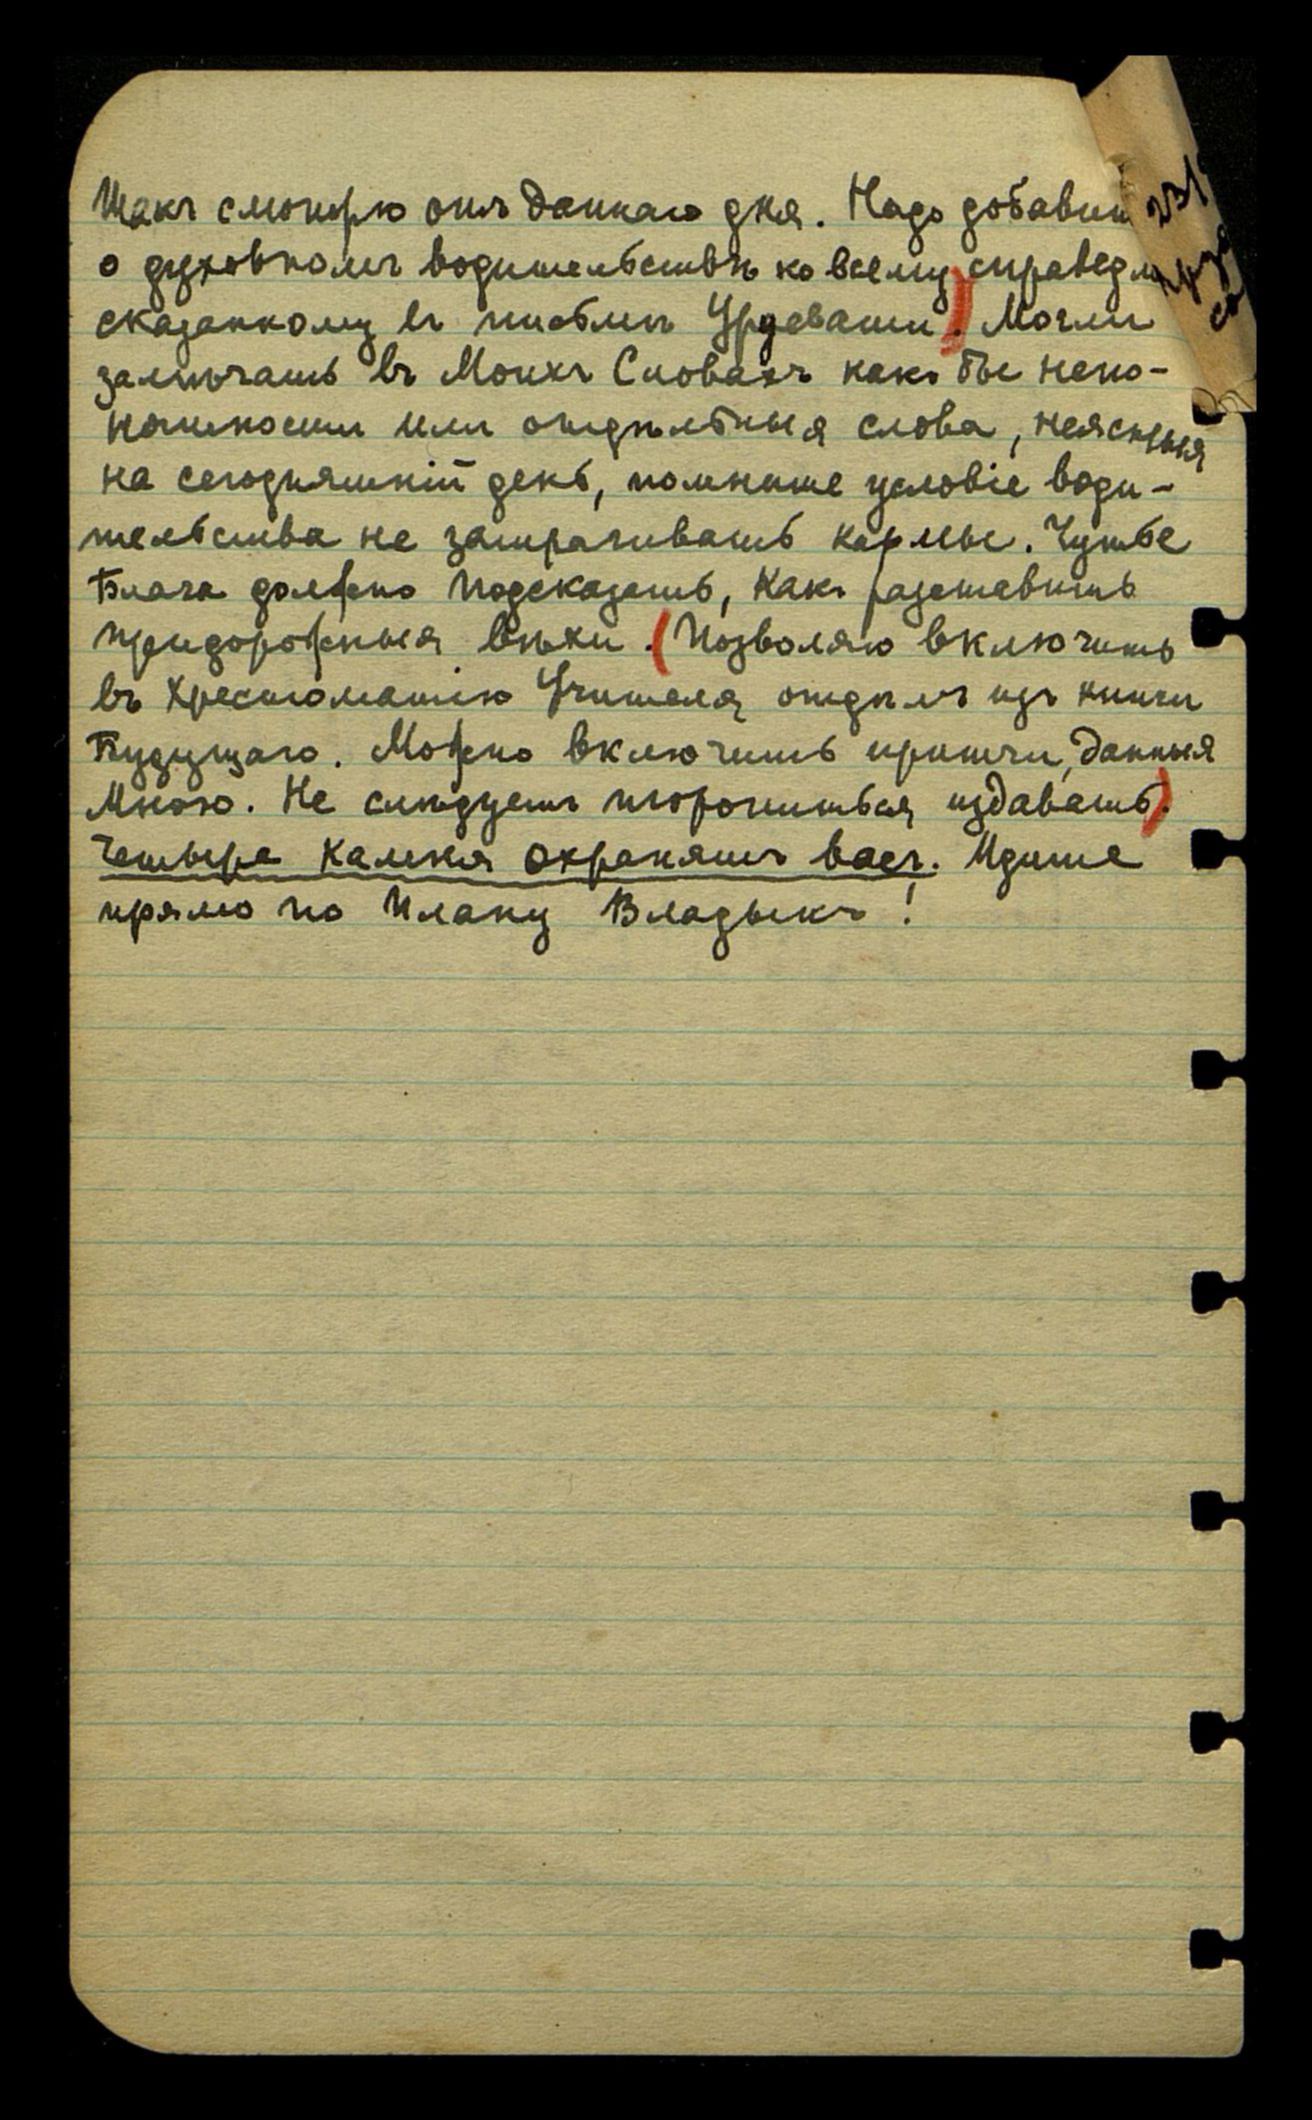 Такъ смотрю отъ даннаго дня. Надо добавит
о духовномъ водительствѣ ко всему справедл
сказанному въ письмѣ Урусвати). Могли
замѣчать въ Моихъ Словахъ какъ бы непо-
нятности или отдѣльныя слова, неясныя
на сегодняшній день, помните условіе води-
тельства не затрагивать кармы. Чутье
Блага должно подсказать, какъ разставить
придорожныя вѣхи. (Позволяю включить
въ Хрестоматію Учителя отдѣлъ изъ книги
Будущаго. Можно включить притчи, данныя
Мною. Не слѣдуетъ торопиться издавать).
Четыре Камня охранятъ васъ. Идите
прямо по Плану Владыкъ!
23/